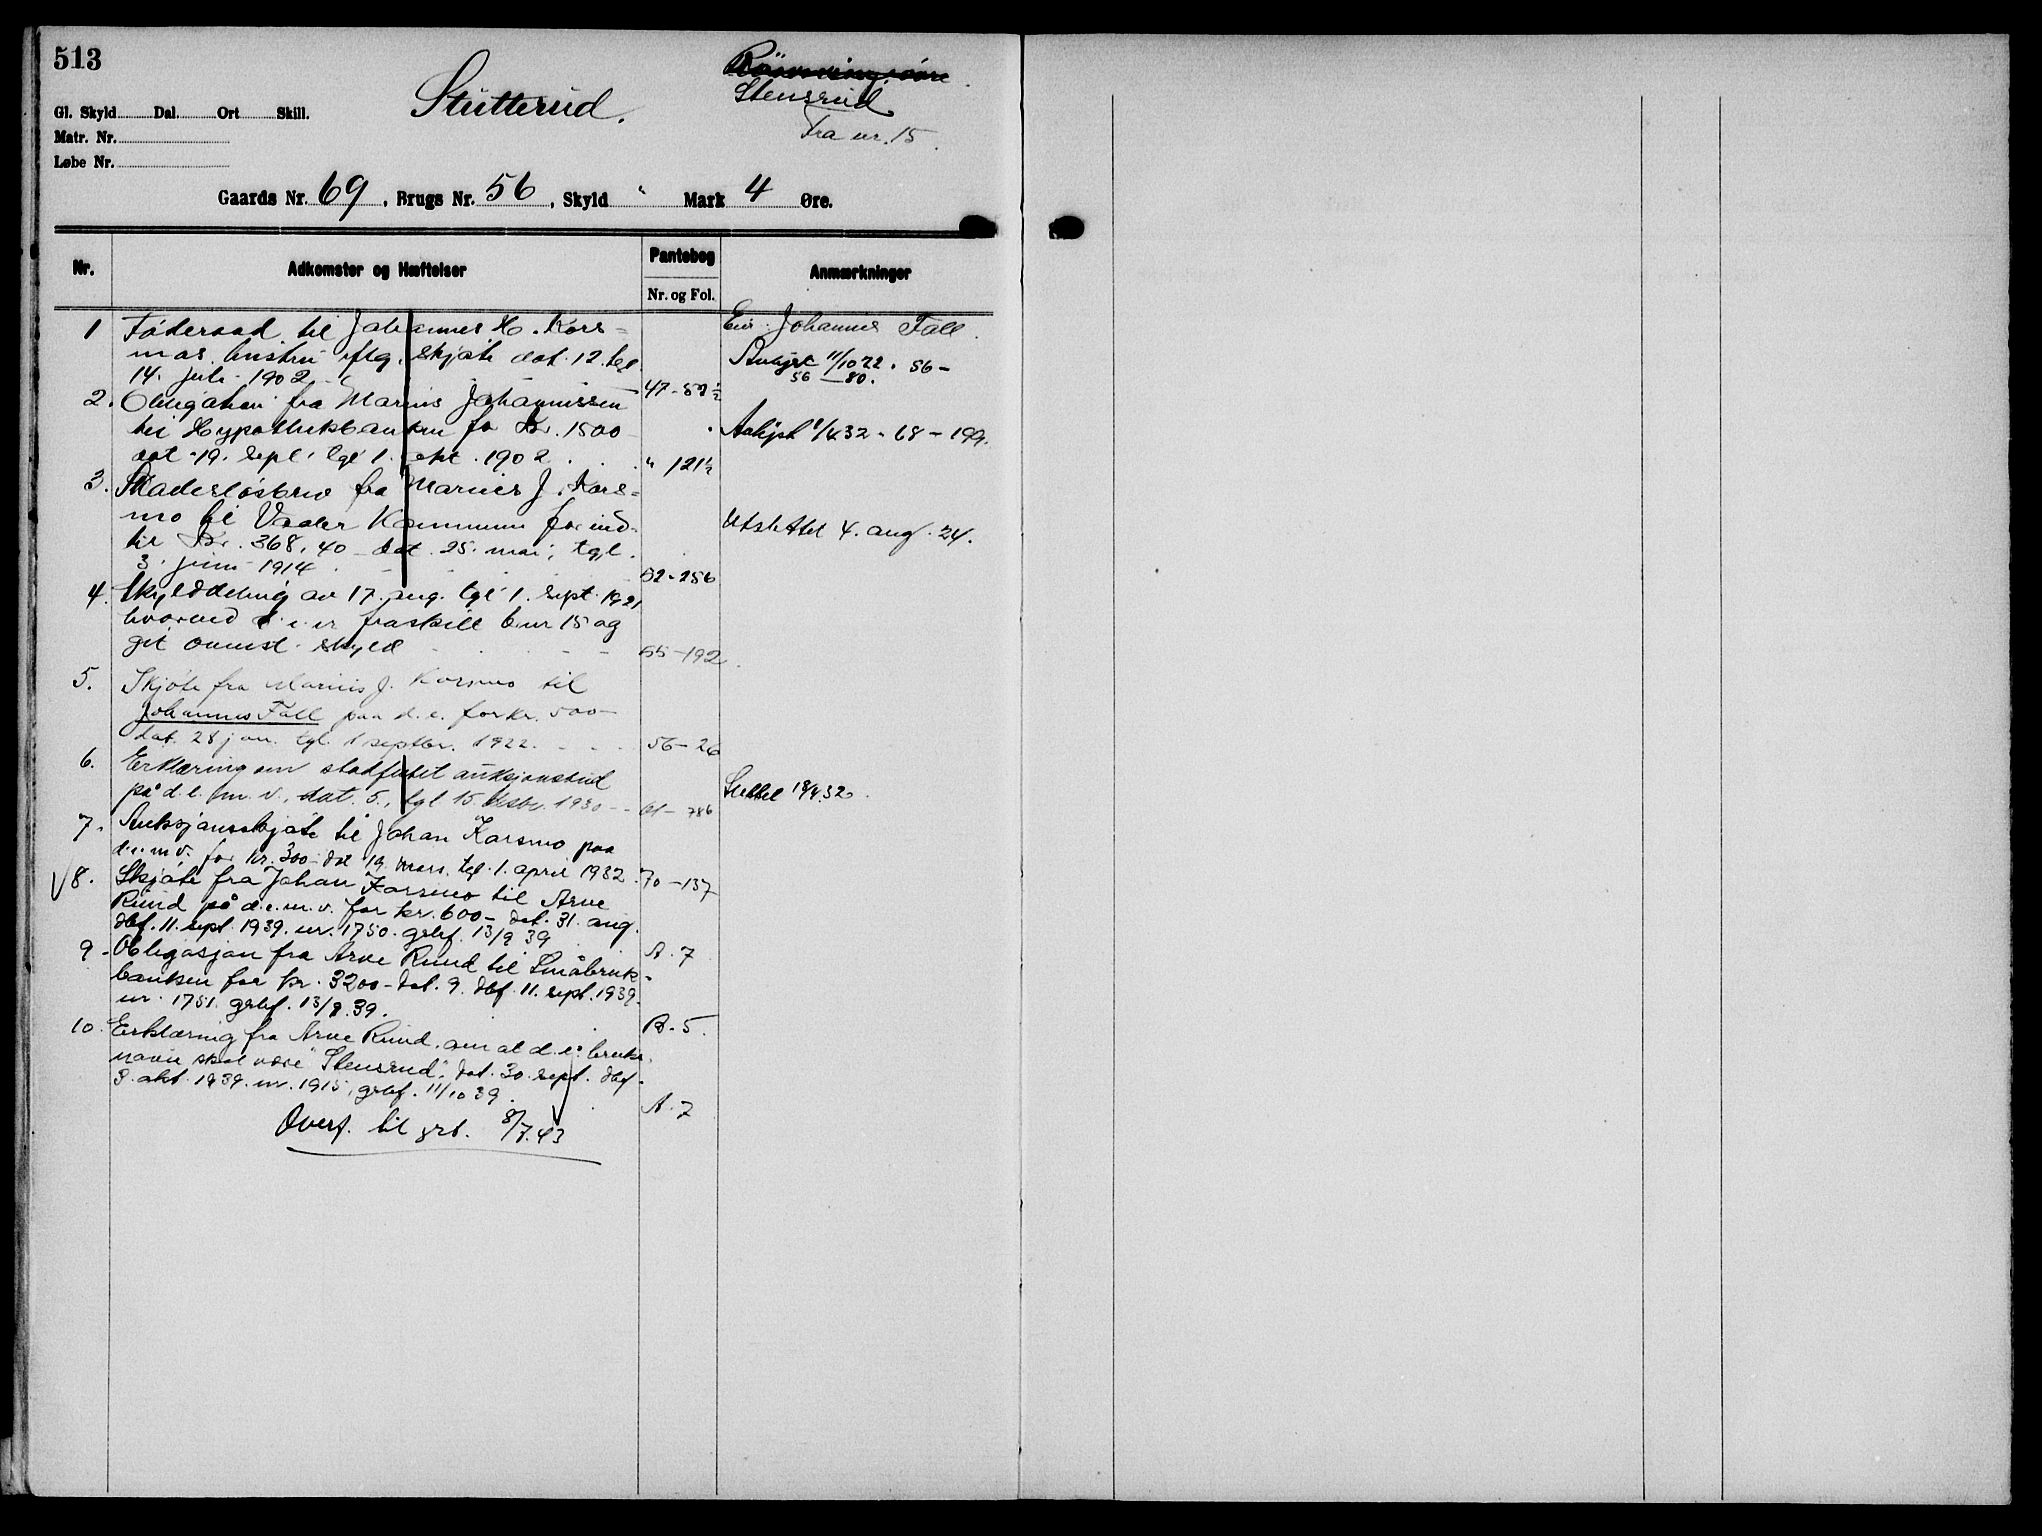 513
Stutterud.
Stensrud
Fra nr. 15.
Gl. Skyld Dal. Ort Skill.
Matr. Nr.
Løbe Nr.
Gaards Nr. 69, Brugs Nr. 56, Skyld " Mark 4 Øre.
Nr. Adkomster og Hæftelser Pantebog Anmærkninger
Nr. og Fol.
1 Føderaad til Johannes H. Kors- Eier: Johannes Fall.
mos hustru iflg. skjøte dat. 12. tgl.
14. juli 1902 47-57½ 11/10 22. 56-
56-80.
2. Obligation fra Marius Johannissen
til Hypothekbanken for Kr. 1500 Avlyst 1/4 32 - 68 - 199.
dat. 19. sept. tgl 1. okt. 1902 " 121½
3. Skadesløsbrev fra Marius J. Kors-
mo til Vaaler Kommune for ind- Utslettet 4. aug. 24.
til Kr. 368,40 dat. 25. mai, tgl.
3. juni 1914 52-256
4. Skylddeling av 17. aug. tgl 1. sept. 1921
hvorved d.e. er fraskilt bnr 15 og
git ovenst. skyld 55-192
5. Skjøte fra Marius J. Korsmo til
Johannes Fall paa d.e. for kr. 500-
dat. 28 jan. tgl. 1 septbr. 1922. 56-26
6. Erklæring om stadfestet auksjonsbud
på d.e. m.v., dat. 5., tgl 15. desbr. 1930 61-786 Slettet 19/4.32.
7. Auksjonsskjøte til Johan Korsmo paa
d.e. m.v. for kr. 300- dat 19. mars, tgl. 1. april 1932. 70-137
√8. Skjøte fra Johan Korsmo til Arve
Rund på d.e.m.v. for kr. 600- dat. 31. aug.
dbf. 11. sept. 1939. nr. 1750. grbf. 13/9 39 A. 7
9. Obligasjon fra Arve Rund til Småbruk-
banken for kr. 3200- dat. 9. dbf. 11. sept. 1939.
nr. 1751. grbf. 13/9.39. B. 5.
10. Erklæring fra Arve Rund. om at d.e. bruks-
navn skal være "Stensrud". dat. 30. sept. dbf.
9. okt. 1939. nr. 1915, grbf. 11/10 39. A. 7
Overf. til grb. 8/7.43